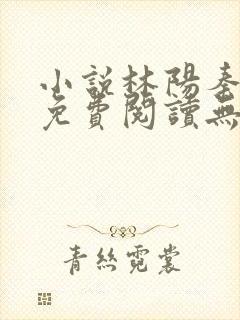 小說林陽秦
免費閱讀無
青絲霓裳